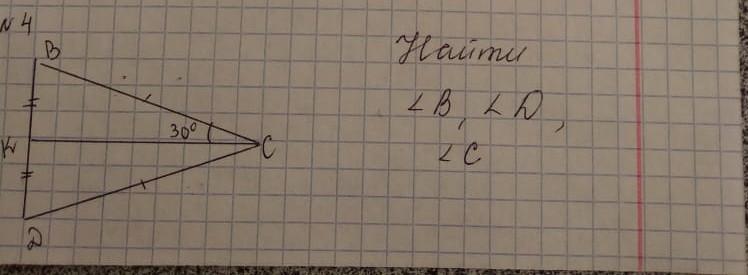 № 4
B
K
30°
C
D
Найти
∠B, ∠D,
∠C